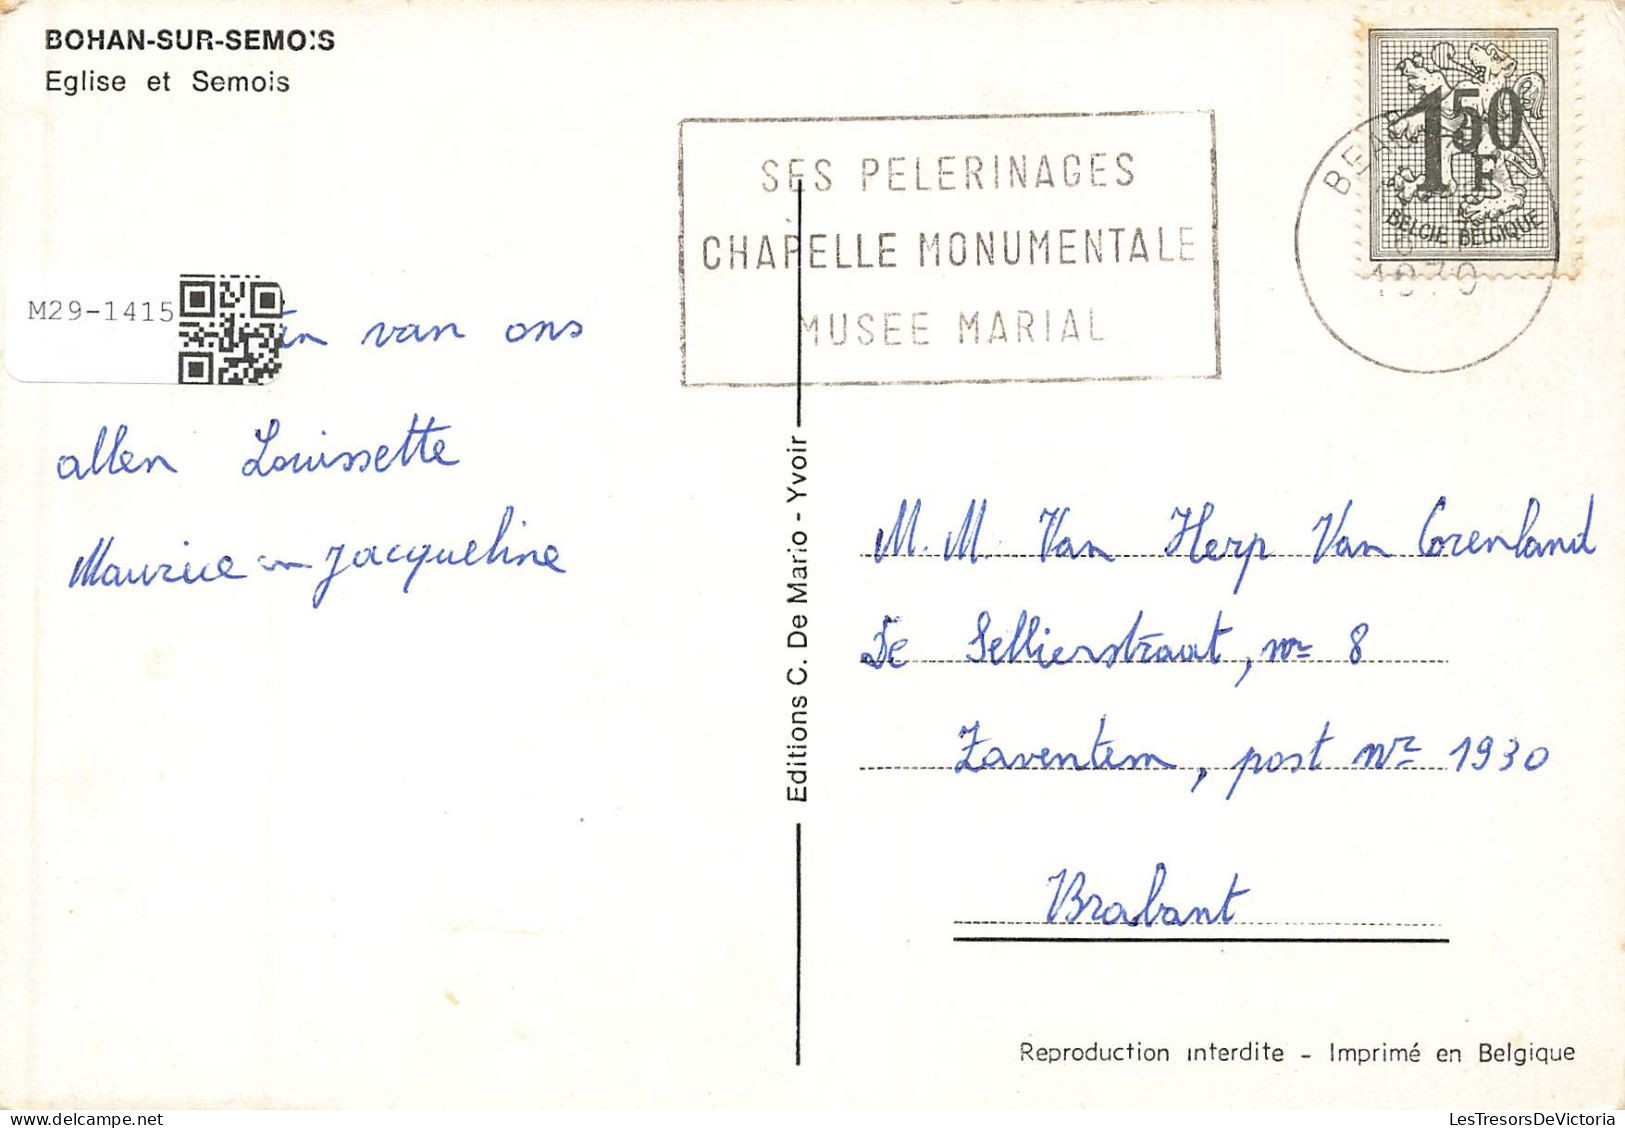 BOHAN-SUR-SEMOIS
Eglise et Semois
SES PELERINAGES
CHAPELLE MONUMENTALE
MUSEE MARIAL
1 50 F
BELGIE BELGIQUE
M29-1415
van ons
allen Louissette
Maurice en Jacqueline
Editions C. De Mario - Yvoir
M. M. Van Herp Van Corenland
De Sellierstraat, nr 8
Zaventem, post nr 1930
Brabant
Reproduction interdite - Imprimé en Belgique
LesTresorsDeVictoria